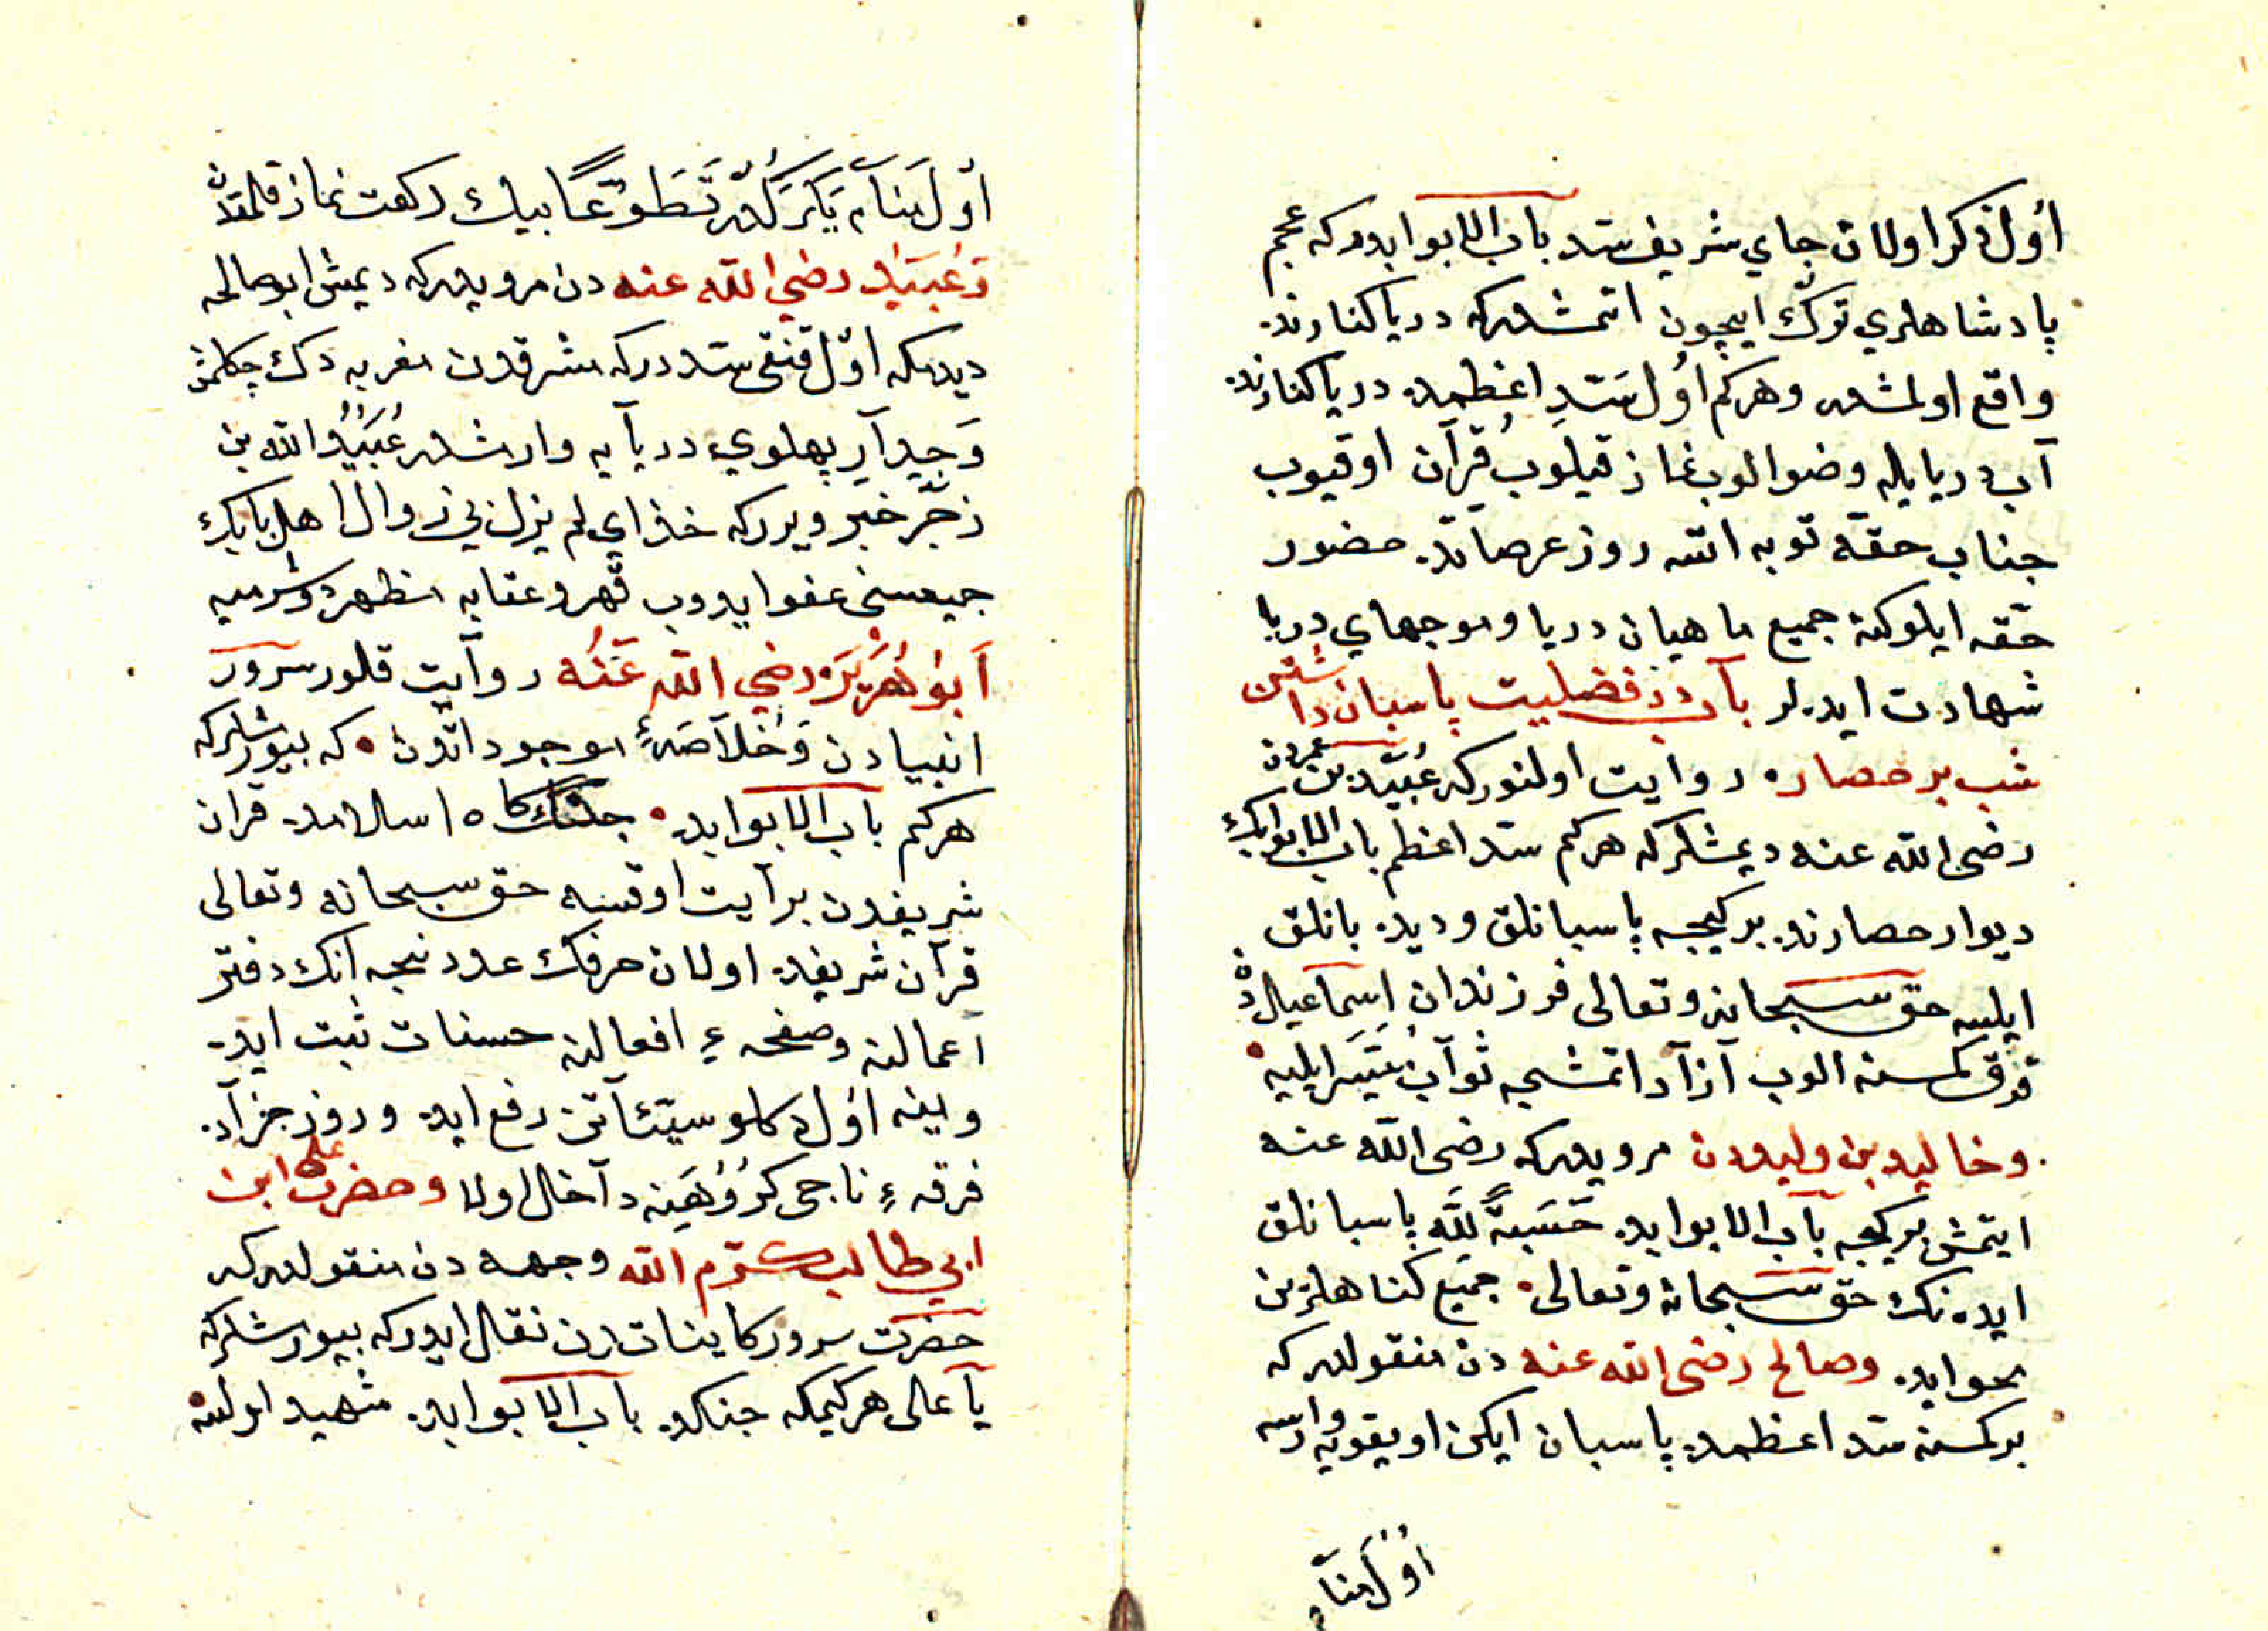 اُول ذكر اولان جاي شريف سدّ باب الابوابدر كه عجم
پادشاهلري تركّ ايچون اتمشلركه دريا كنارنده
واقع اولمشدر وهركم اُول سَدِّ اعظمده دريا كنارنده
آب دريا يله وضو الوب نماز قيلوب قرآن اوقيوب
جناب حقّه توبه اتسه روز عرصاتده حضور
حقّه ايلوكنه جميع ماهيان دريا وموجهاي دريا
شهادت ايدەلر باب در فضليت پاسبان داشتن
شب بر حصاره روايت اولنوركه عُبيّد بن عمردن
رضى الله عنه ديمشلركه هركم سدّ اعظم باب الابوابك
ديوار حصارنده بر كيجه پاسبانلق وديده بانلق
ايلسه حق سبحانه وتعالى فرزندان اسماعيل دن
قرق كمسنه الوب آزآد اتمشجه ثوآب مُيَسّر ايليه
وخاليد بن وليددن مرويدركه رضى الله عنه
ايتمش بر كيجه بآب الابوابده حَسَبةً لله پاسبانلق
ايدەنك حق سبحانه وتعالى جميع كناهلرين
محو ايده وصالح رضى الله عنه دن منقولدركه
بر كمسنه سدّ اعظمده پاسبان ايكن اويقويه وارسه
اُول مَنآم
اُول مَنآم يَكرَكدُر تَطَوّعًا بيك ركعت نماز قلمقدن
وَعُبَيد رضي الله عنه دن مرويدركه ديمش ابو صالحه
ديدمكه اوّل قنقى سدّدركه مشرقدن مغربه دك چكلمش
وَجيدآرِ پهلوي دريآيه وارمشدر عُبَيدُ الله بن
زجّر خبر ويرركه خذاي لم يزل بي زوال اهل بابك
جميعسنى عفو ايدوب قهر وعقابه مظهر دوشرميه
اَبُو هُرَيْرَه رضي الله عَنْه روآيت قلور سرور
انبيادن وَخُلاَصَهٔ موجوداتدن كه بيورمشلركه
هركم باب الابوابده جنگگاه اسلامده قران
شريفدن بر آيت اوقسه حق سبحانه وتعالى
قرآن شريفده اولان حرفك عددنجه آنك دفتر
اعمالنه وصفحهء افعالنه حسنات ثبت ايده
وينه اُول دكلو سيّئاتن رفع ايده وروز جزآده
فرقهء ناجى كُرُوُهَينه دآخل اولا وحضرت على ابن
ابي طالب كرّم الله وجهه دن منقولدركه
حضرت سرور كايناتدن نقل ايدركه بيورمشلركه
يآ على هركيمكه جنكده باب الابوابده شهيد اولسه